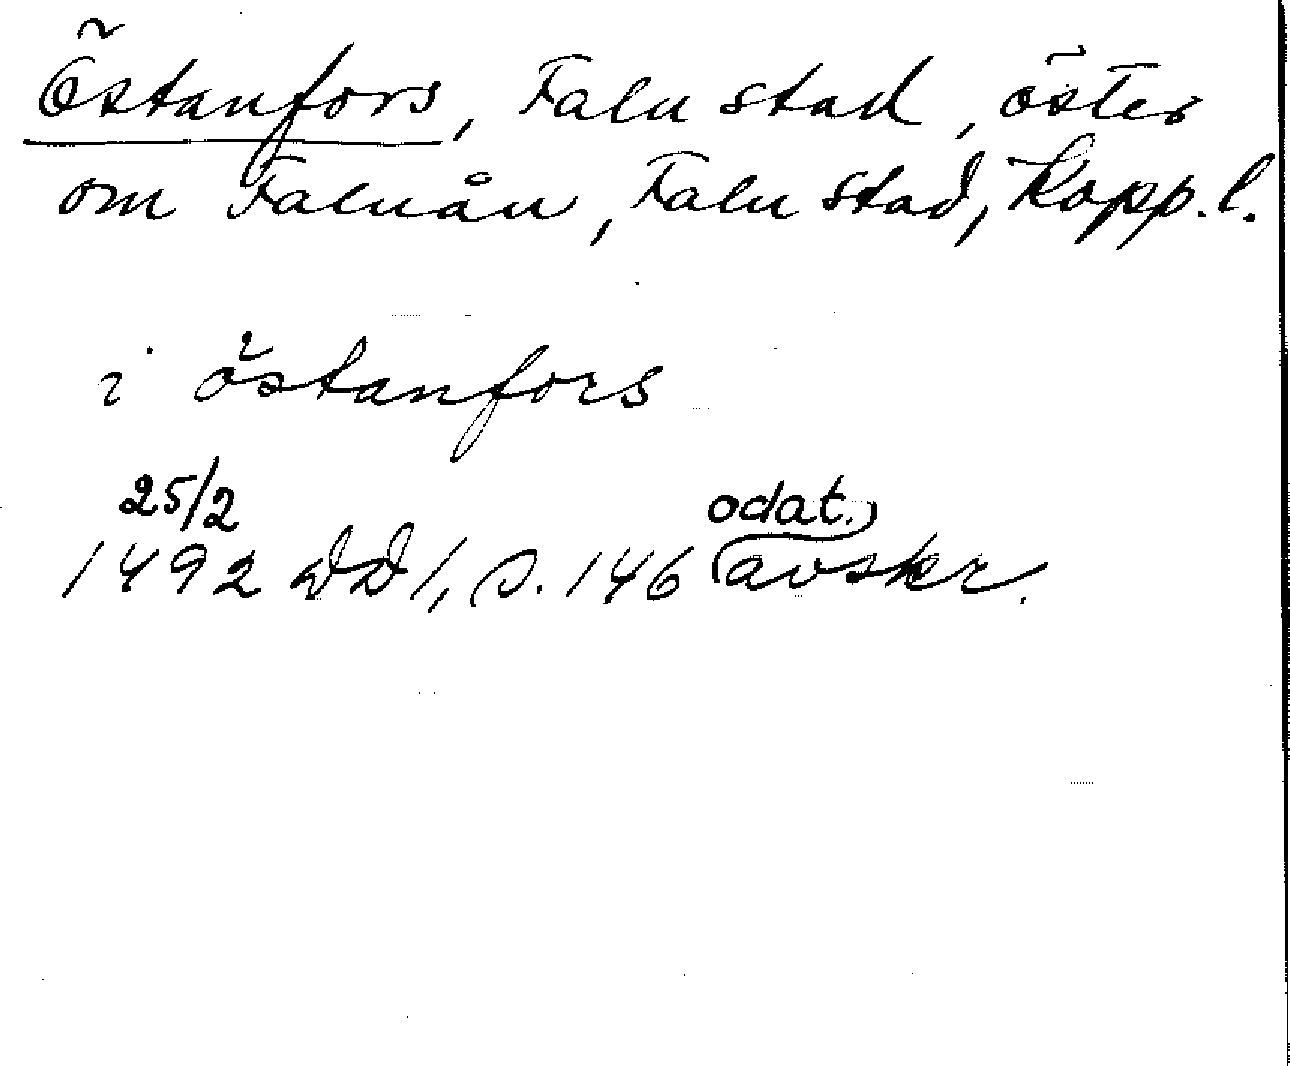 Östanfors, Falu stad, öster
om Faluån, Falu stad, Kopp. l.
i östanfors
25/2
1492 DD 1, s. 146 odat. avskr.